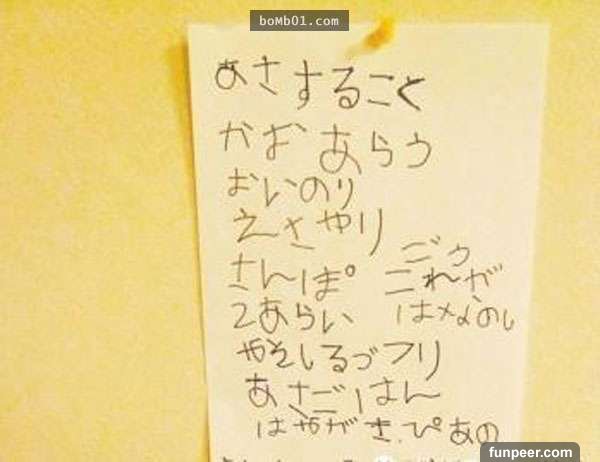 boMb01.com
あさすること
かおあらう
おいのり
えさやり
さんぽ
2あらい
ごう
これが
はなのし
みそしるづフリ
あさごはん
はやがき.ぴあの
funpeer.com